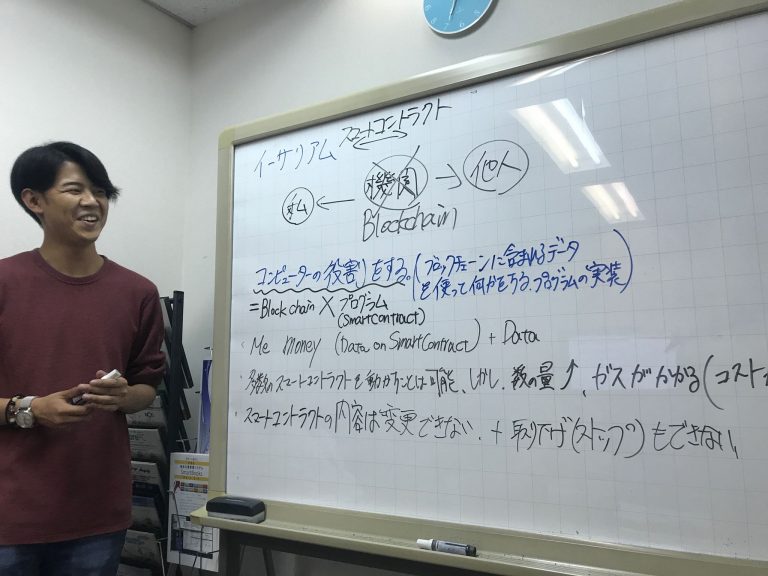 スマートコントラクト
イーサリアム
機関
他人
Blockchain
コンピューターの役割りをする。(ブロックチェーンに含まれるデータ
を使って何かをする、プログラムの実装)
= Blockchain × プログラム
(SmartContract)
・Me money (Data on SmartContract) + Data
・多数のスマートコントラクトを動かすことは可能、しかし、数の量↑、ガスがかかる(コスト
・スマートコントラクトの内容は変更できない、+ 取り下げ(ストップ)もできない